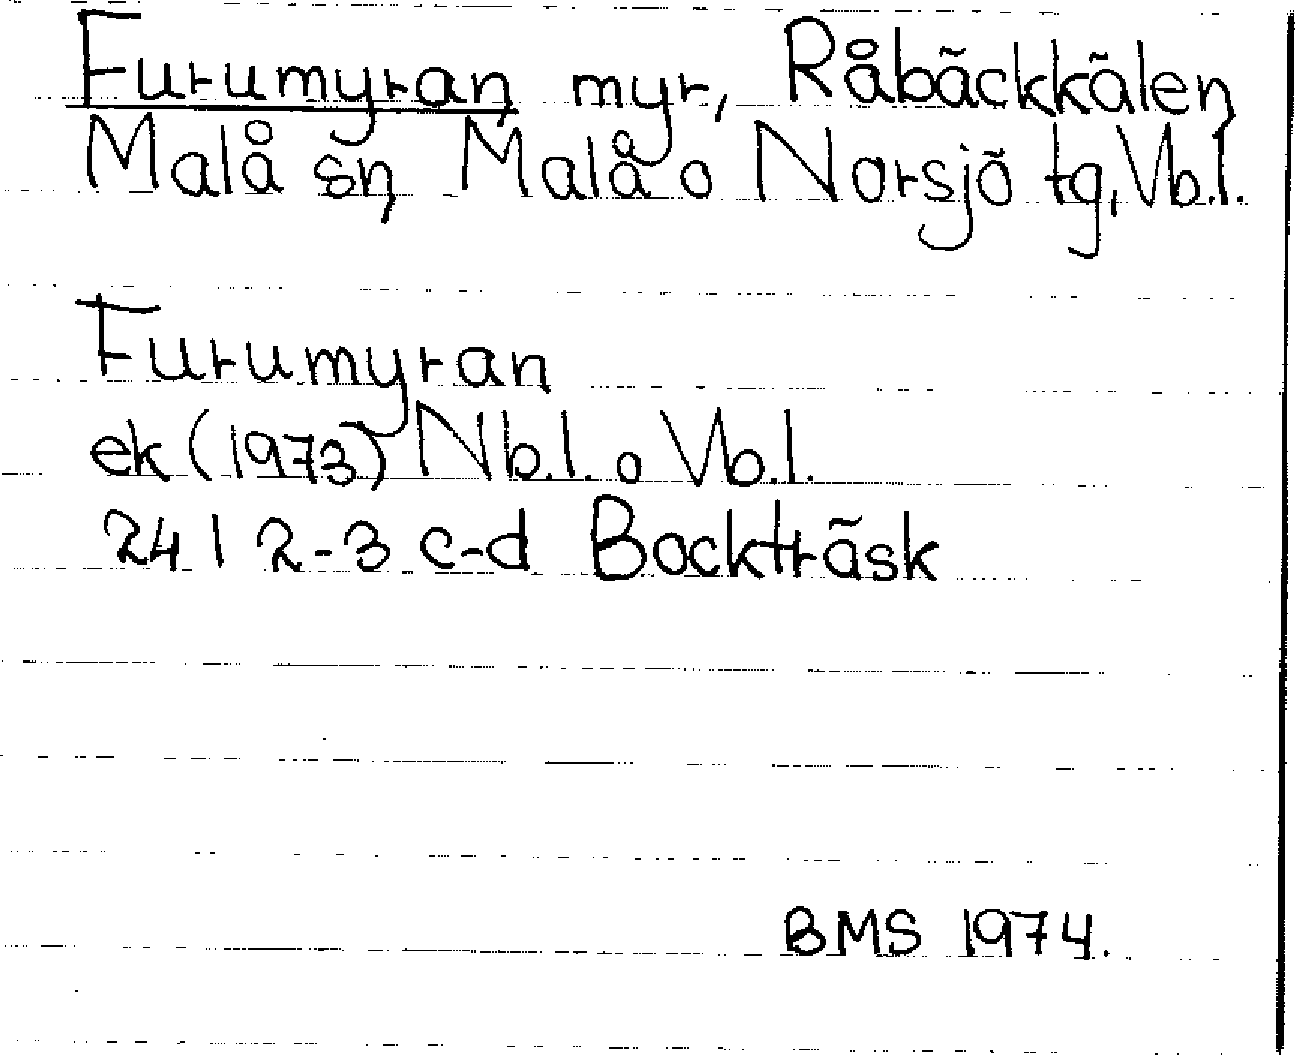 Furumyran, myr, Råbäckkälen,
Malå sn, Malå o Norsjö tg, Vb.l.
Furumyran
ek (1973) Nb.l. o Vb.l.
24 I 2-3 c-d Bockträsk
BMS 1974.